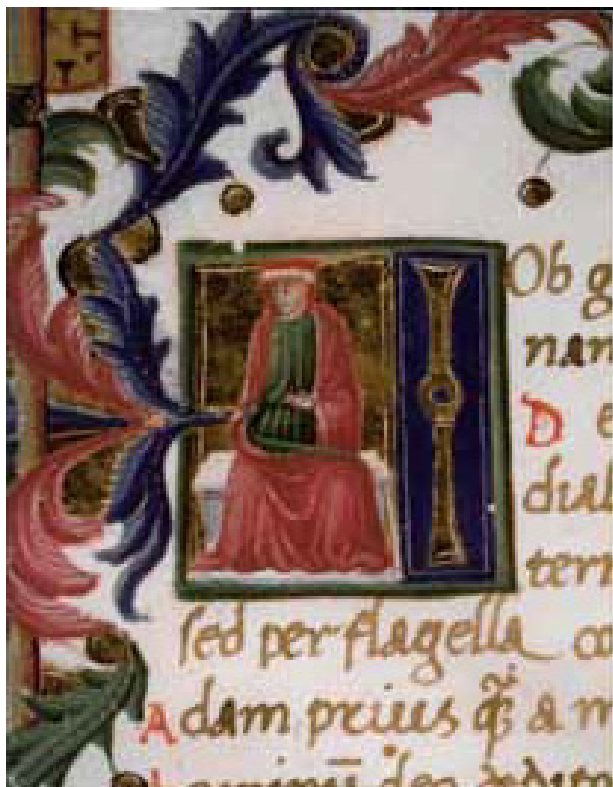 I Ob g
nan
D e
dial
terr
sed per flagella co
Adam prius q̃ a m